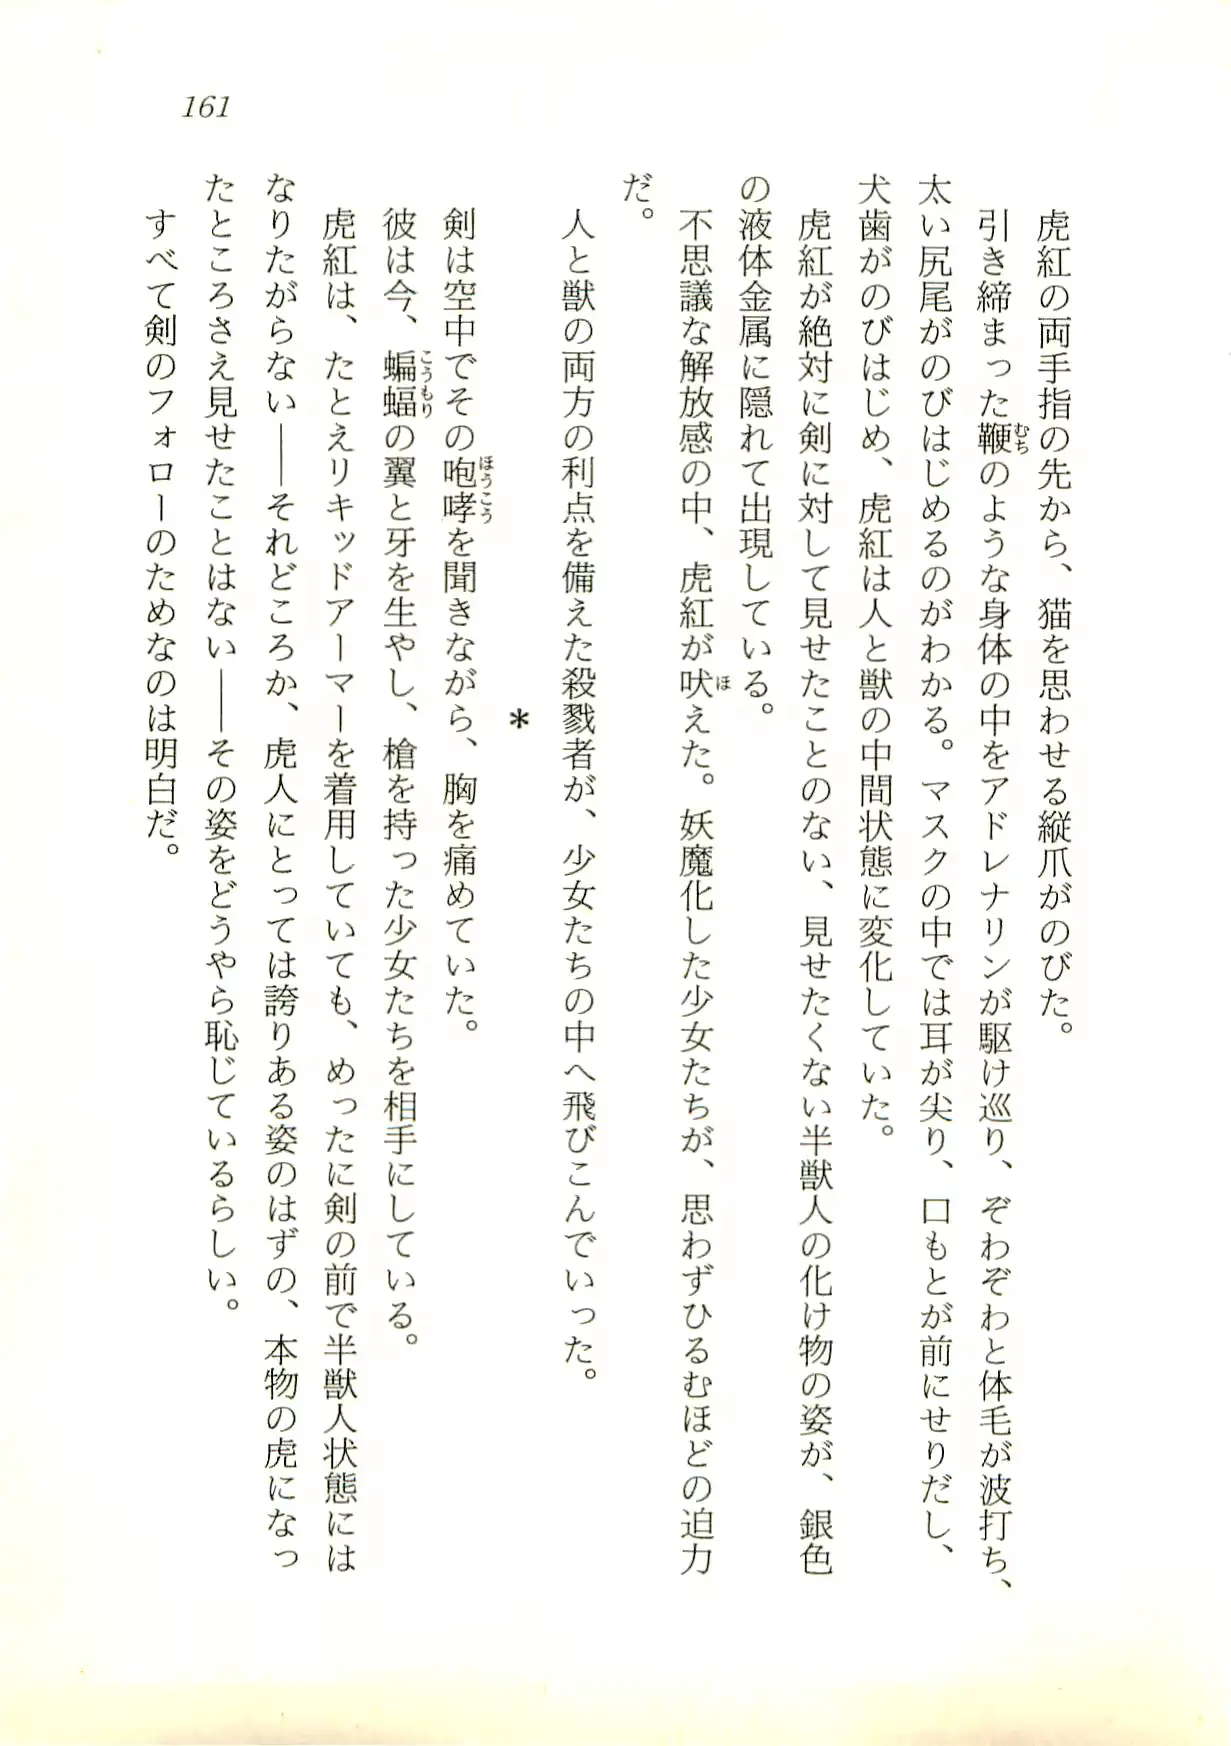 161
虎紅の両手指の先から、猫を思わせる縦爪がのびた。
引き締まった鞭のような身体の中をアドレナリンが駆け巡り、ぞわぞわと体毛が波打ち、
太い尻尾がのびはじめるのがわかる。マスクの中では耳が尖り、口もとが前にせりだし、
犬歯がのびはじめ、虎紅は人と獣の中間状態に変化していた。
虎紅が絶対に剣に対して見せたことのない、見せたくない半獣人の化け物の姿が、銀色
の液体金属に隠れて出現している。
不思議な解放感の中、虎紅が吠えた。妖魔化した少女たちが、思わずひるむほどの迫力
だ。
人と獣の両方の利点を備えた殺戮者が、少女たちの中へ飛びこんでいった。
*
剣は空中でその咆哮を聞きながら、胸を痛めていた。
彼は今、蝙蝠の翼と牙を生やし、槍を持った少女たちを相手にしている。
虎紅は、たとえリキッドアーマーを着用していても、めったに剣の前で半獣人状態には
なりたがらない――それどころか、虎人にとっては誇りある姿のはずの、本物の虎になっ
たところさえ見せたことはない――その姿をどうやら恥じているらしい。
すべて剣のフォローのためなのは明白だ。